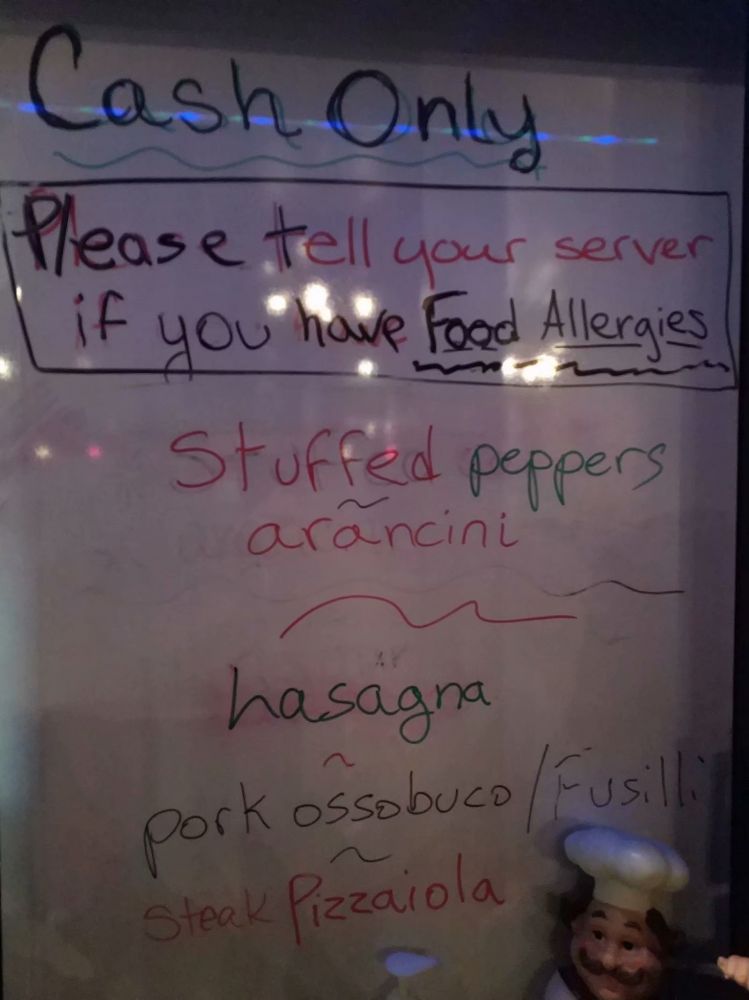 Cash Only
Please tell your server
if you have Food Allergies
Stuffed peppers
arancini
Lasagna
pork ossobuco/Fusilli
Steak Pizzaiola